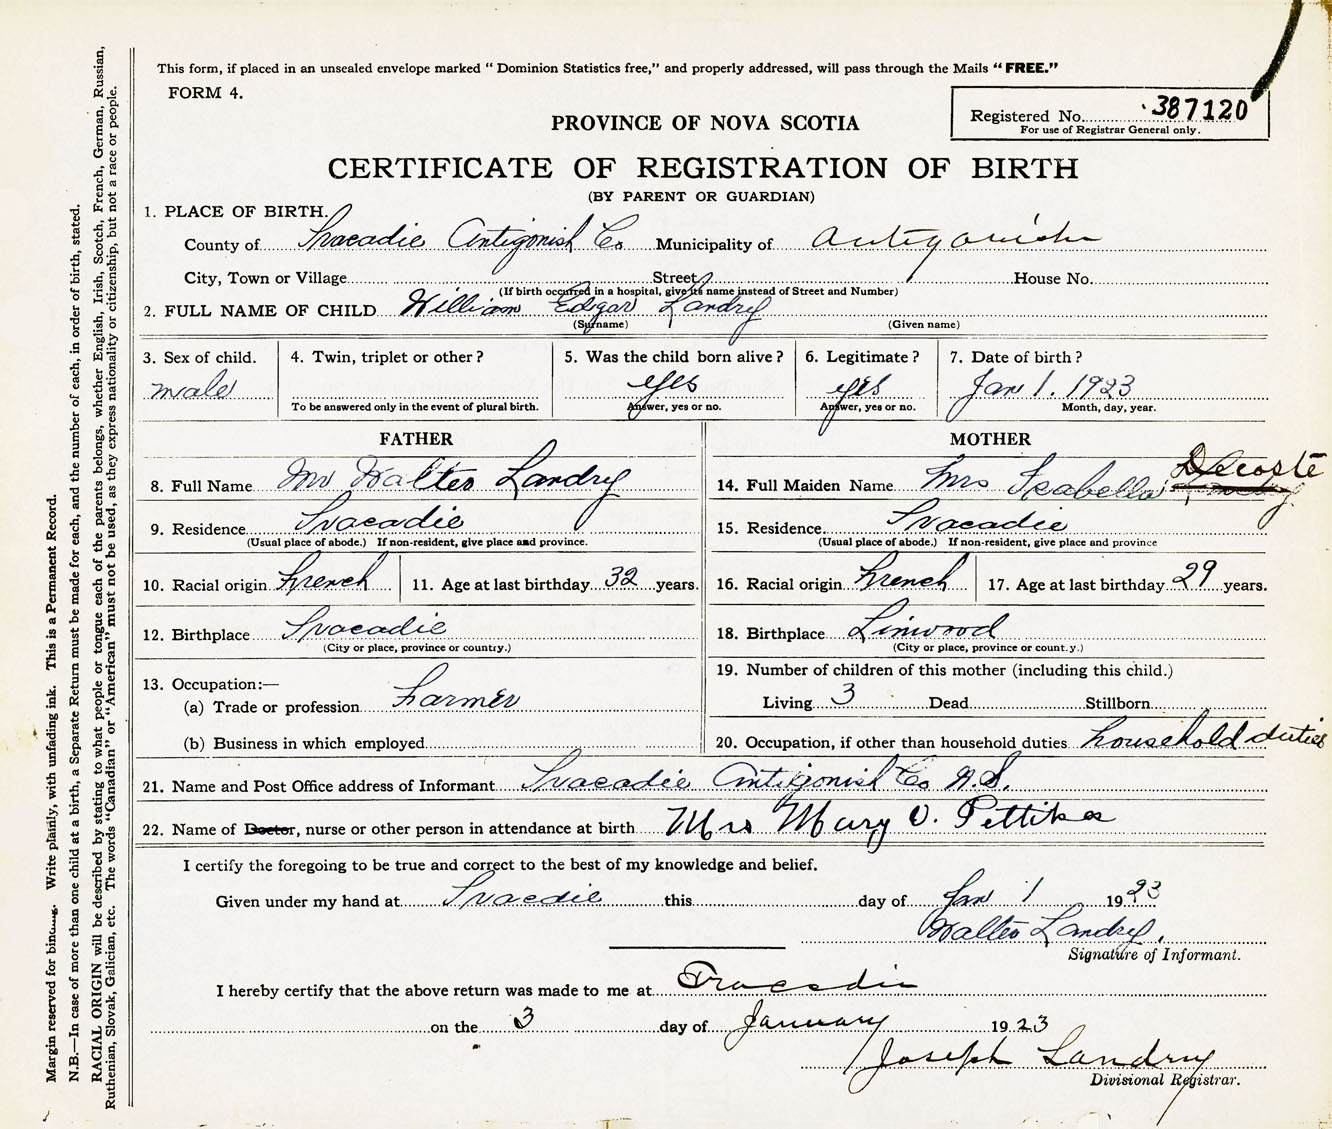 This form, if placed in an unsealed envelope marked " Dominion Statistics free," and properly addressed, will pass through the Mails " FREE."
FORM 4.
Registered No. 387120
For use of Registrar General only.
PROVINCE OF NOVA SCOTIA
CERTIFICATE OF REGISTRATION OF BIRTH
(BY PARENT OR GUARDIAN)
1. PLACE OF BIRTH.
County of Tracadie Antigonish Co Municipality of Antigonish
City, Town or Village Street House No.
(If birth occurred in a hospital, give its name instead of Street and Number)
2. FULL NAME OF CHILD William Edgar Landry
(Surname) (Given name)
3. Sex of child. 4. Twin, triplet or other ? 5. Was the child born alive ? 6. Legitimate ? 7. Date of birth ?
male yes yes Jan 1. 1923
To be answered only in the event of plural birth. Answer, yes or no. Answer, yes or no. Month, day, year.
FATHER
8. Full Name Mr Walter Landry
9. Residence Tracadie
(Usual place of abode.) If non-resident, give place and province.
10. Racial origin French 11. Age at last birthday 32 years.
12. Birthplace Tracadie
(City or place, province or country.)
13. Occupation:—
(a) Trade or profession Farmer
(b) Business in which employed
MOTHER
14. Full Maiden Name Mrs Isabella Decoste
15. Residence Tracadie
(Usual place of abode.) If non-resident, give place and province
16. Racial origin French 17. Age at last birthday 29 years.
18. Birthplace Linwood
(City or place, province or count.y.)
19. Number of children of this mother (including this child.)
Living 3 Dead Stillborn
20. Occupation, if other than household duties household duties
21. Name and Post Office address of Informant Tracadie Antigonish Co N.S.
22. Name of Doctor, nurse or other person in attendance at birth Mrs Mary V. Pettikas
I certify the foregoing to be true and correct to the best of my knowledge and belief.
Given under my hand at Tracdie this day of Jan 1 1923
Walter Landry.
Signature of Informant.
I hereby certify that the above return was made to me at Tracadie
on the 3 day of January 1923
Joseph Landry
Divisional Registrar.
Margin reserved for binding. Write plainly, with unfading ink. This is a Permanent Record.
N.B.—In case of more than one child at a birth, a Separate Return must be made for each, and the number of each, in order of birth, stated.
RACIAL ORIGIN will be described by stating to what people or tongue each of the parents belongs, whether English, Irish, Scotch, French, German, Russian,
Ruthenian, Slovak, Galician, etc. The words "Canadian" or "American" must not be used, as they express nationality or citizenship, but not a race or people.